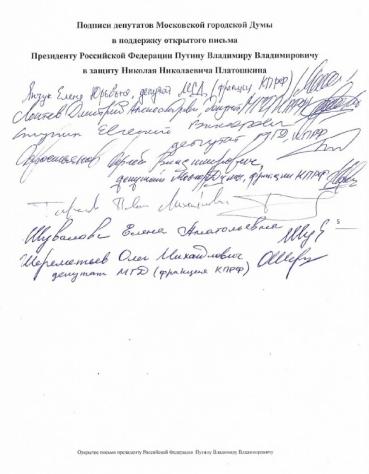 Подписи депутатов Московской городской Думы
в поддержку открытого письма
Президенту Российской Федерации Путину Владимиру Владимировичу
в защиту Николая Николаевича Платошкина
Янчук Елена Юрьевна, депутат МГД, (фракция КПРФ)
Локтев Дмитрий Александрович
Ступин Евгений Викторович
депутат МГД, КПРФ
Владимирович
депутат Мосгордумы, фракция КПРФ
Тарасов Павел Михайлович
Шувалова Елена Анатольевна
Шереметьев Олег Михайлович
депутат МГД (фракция КПРФ)
Открытое письмо президенту Российской Федерации Путину Владимиру Владимировичу